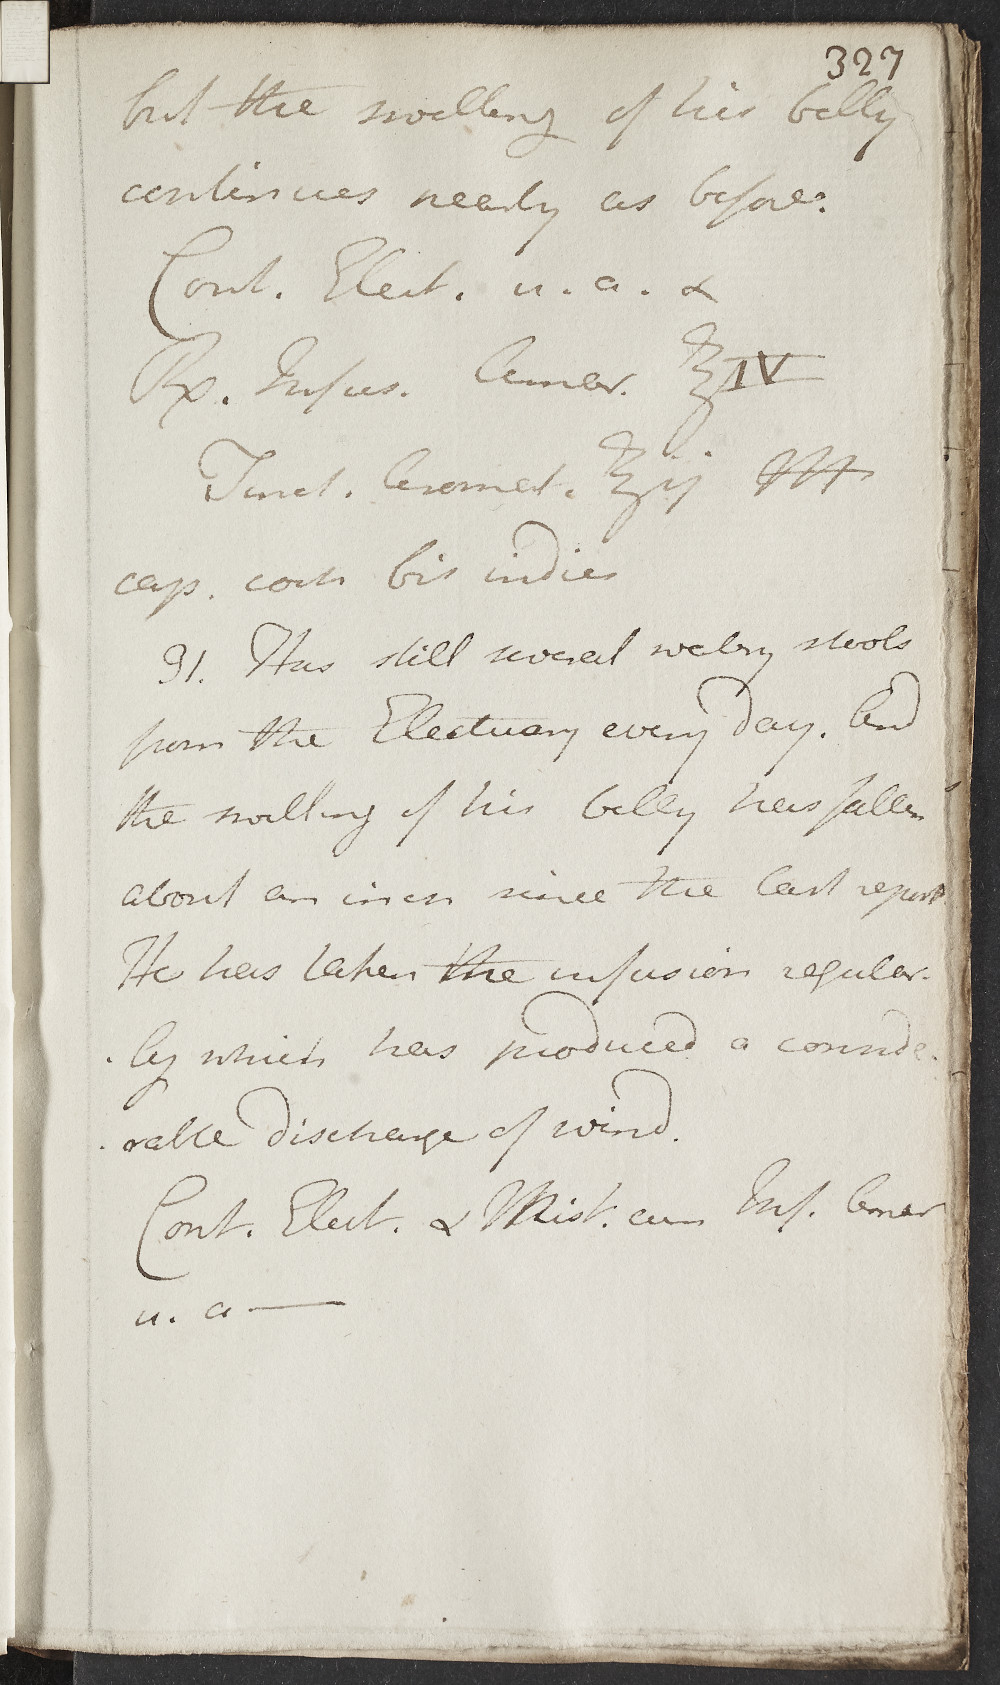 327
but the swelling of his belly
continues nearly as before.
Cont. Elect. u. a. &
Rx. Infus. Amar. ℥IV
Tinct. Aromat. ℥ij M
cap. coch bis indies
31. Has still several watery stools
from the Electuary every day. And
the swelling of his belly has fallen
about an inch since the last report
He has taken the infusion regular-
-ly which has produced a conside-
-rable discharge of wind.
Cont. Elect. & Mist. cum Inf. Amar
u. a —